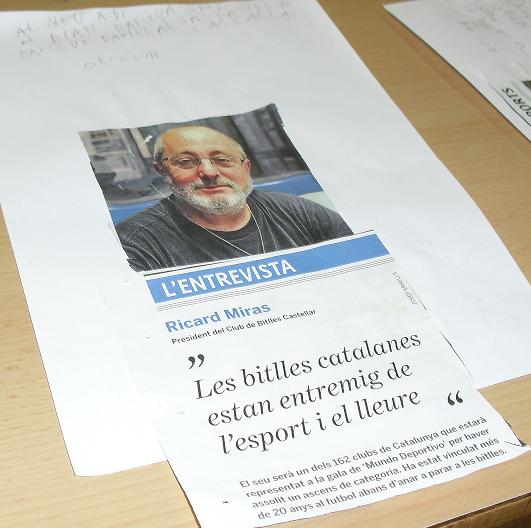 L'ENTREVISTA
Ricard Miras
President del Club de Bitlles Castellar
”
Les bitlles catalanes
estan entremig de
l'esport i el lleure
“
El seu serà un dels 162 clubs de Catalunya que estarà
representat a la gala de 'Mundo Deportivo' per haver
assolit un ascens de categoria. Ha estat vinculat més
de 20 anys al futbol abans d'anar a parar a les bitlles.